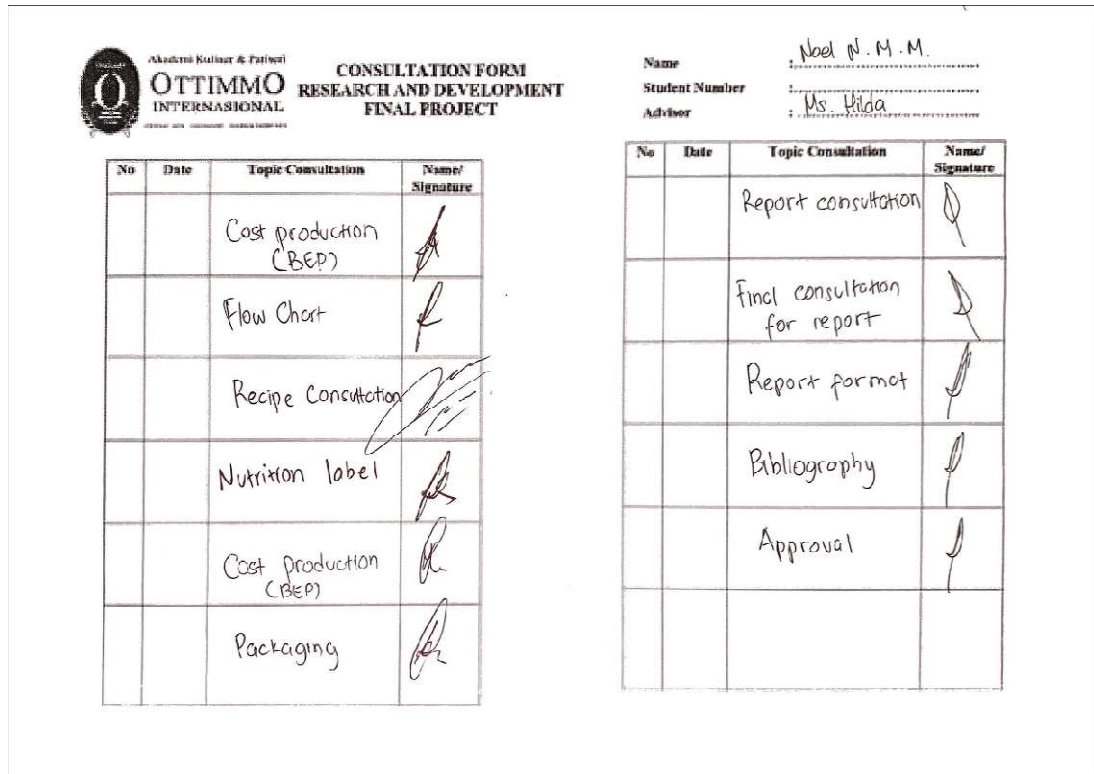 Akademi Kuliner & Patiseri
OTTIMMO
INTERNASIONAL
CONSULTATION FORM
RESEARCH AND DEVELOPMENT
FINAL PROJECT
No Date Topic Consultation Name/
Signature
Cost production
(BEP)
Flow Chart
Recipe Consultation
Nutrition label
Cost production
(BEP)
Packaging
Name : Noel N.M.M.
Student Number :
Advisor : Ms. Hilda
No Date Topic Consultation Name/
Signature
Report consultation
Final consultation
for report
Report format
Bibliography
Approval